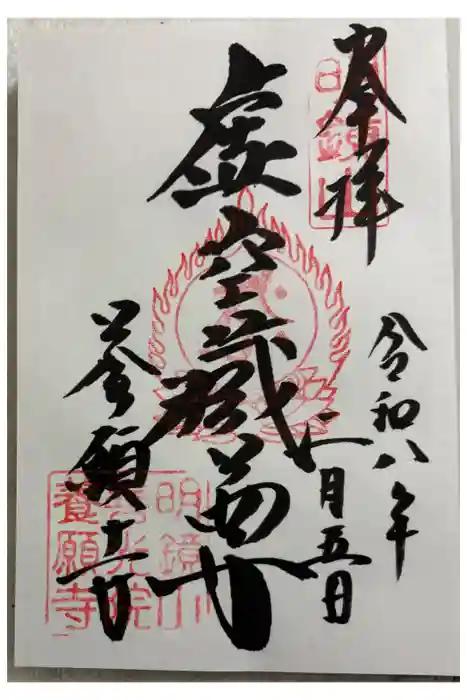 奉拝
明鏡山
令和八年
二月五日
虚空蔵菩薩
養願寺
明鏡山
善光院
養願寺